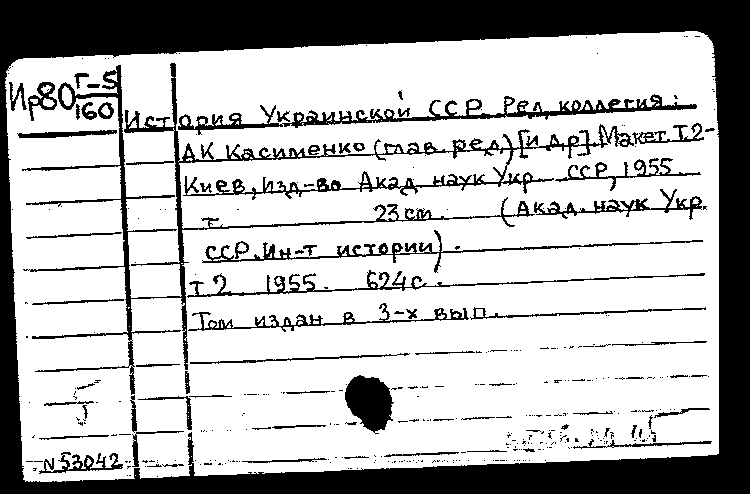 Ир80 Г-5
160
История Украинской ССР. Ред. коллегия:
АК Касименко (глав. ред.) [и др]. Макет. Т.2-
Киев, Изд-во Акад. наук Укр. ССР, 1955.
т. 23 см. (Акад. наук Укр.
ССР. Ин-т истории).
т.2 1955. 624с.
Том издан в 3-х вып.
5
N53042